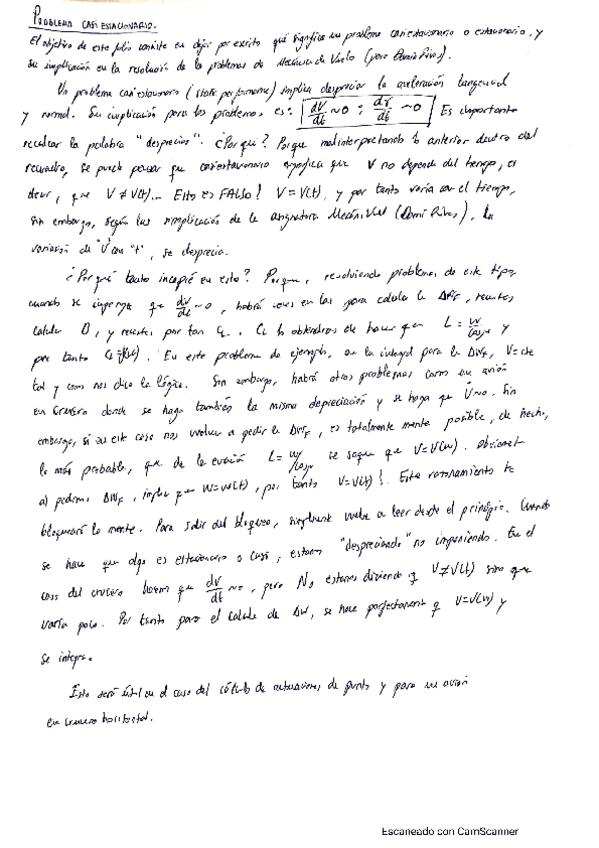 PROBLEMA CASIESTACIONARIO.
El objetivo de este folio consiste en dejar por escrito qué significa un problema casiestacionario o estacionario, y
su implicación en la resolución de los problemas de Mecánica de Vuelo (para Damián Rivas).
Un problema casiestacionario (state performance) implica despreciar la aceleración tangencial
y normal. Su implicación para los problemas, es: dV/dt ~0 ; dγ/dt ~0 Es importante
recalcar la palabra "desprecios". ¿Por qué? Porque malinterpretando lo anterior dentro del
recuadro, se puede pensar que casiestacionario significa que V no depende del tiempo, es
decir, que V ≠ V(t)... Esto es FALSO! V = V(t), y por tanto varía con el tiempo,
sin embargo, según la simplificación de la asignatura la
variación de "V" con "t", se desprecia.
¿Por qué tanto incapié en esto? Porque, resolviendo problemas de este tipo,
cuando se imponga que dV/dt ~0, habrá veces en las para calcular la ΔWF, necesites
calcular D, y necesites por tan CL. CL lo obtendrás de hacer que L = W/cosμ y
por tanto. En este problema de ejemplo, en la integral para la ΔWF, V = cte
tal y como nos dice la lógica. Sin embargo, habrá otros problemas como un avión
en crucero donde se haga también la misma depreciación y se haga que V̇ ~0. Sin
embargo, si en este caso nos vuelven a pedir la ΔWF, es totalmente mente posible, de hecho,
lo más probable, que de la ecuación L = W/cosμ se saque que V = V(W).
al pedirnos ΔWF, implica que W = W(t), por tanto V = V(t)! Este razonamiento te
bloqueará la mente. Para salir del bloqueo, simplemente vuelve a leer desde el principio. Cuando
se hace que algo es estacionario o casi, estamos "despreciando" no imponiendo. En el
caso del crucero hacemos que dV/dt ~0, pero No estamos diciendo q V ≠ V(t) sino que
varía poco. Por tanto para el calculo de ΔW, se hace perfectamente q V = V(W) y
se integra.
Esto será útil en el caso del cálculo de actuaciones de punto y para un avión
en crucero horizontal.
Escaneado con CamScanner